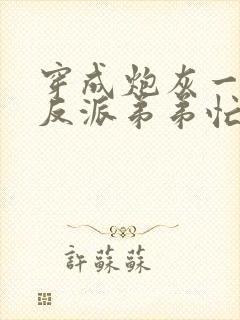 穿成炮灰一
反派弟弟忙
許蘇蘇